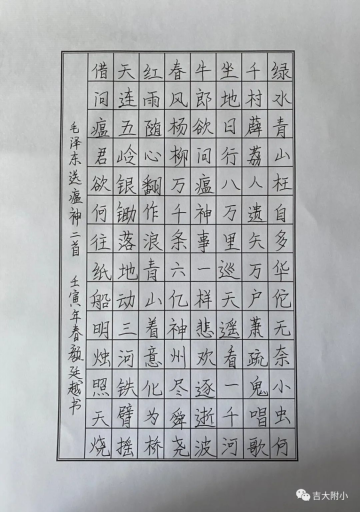 绿水青山枉自多华佗无奈小虫何
千村薜荔人遗矢万户萧疏鬼唱歌
坐地日行八万里巡天遥看一千河
牛郎欲问瘟神事一样悲欢逐逝波
春风杨柳万千条六亿神州尽舜尧
红雨随心翻作浪青山着意化为桥
天连五岭银锄落地动三河铁臂摇
借问瘟君欲何往纸船明烛照天烧
毛泽东送瘟神二首 壬寅年春 越书
吉大附小